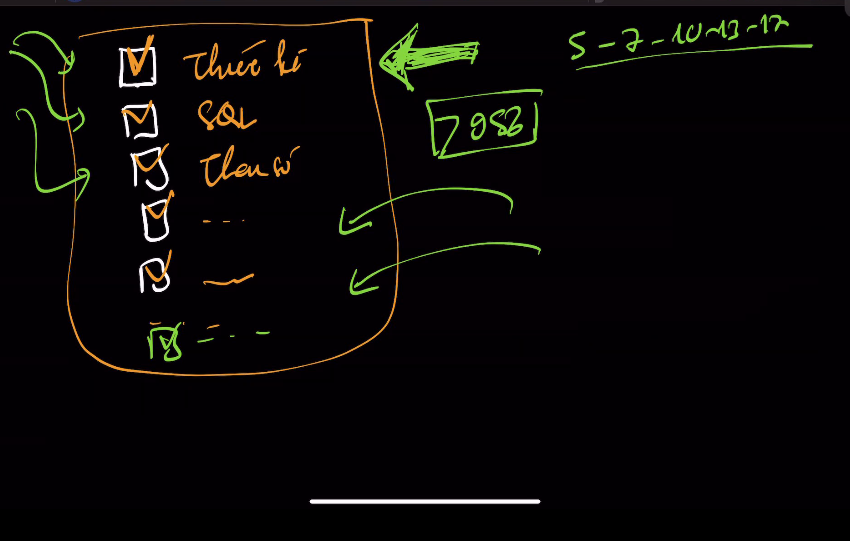 Thiết kế
SQL
Tham số
---
5-7-10-13-17